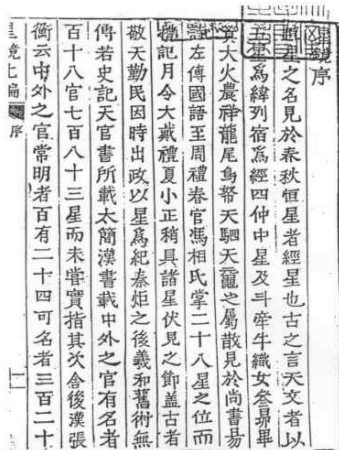 星鏡序
恒星之名見於春秋恒星者經星也古之言天文者以
五星爲緯列宿爲經四仲中星及斗牽牛織女參昴畢
大火農祥龍尾鳥帑天駟天黿之屬散見於尚書易
左傳國語至周禮春官馮相氏掌二十八星之位而
記月令大戴禮夏小正稍具諸星伏見之節盖古者
敬天勤民因時出政以星爲紀秦炬之後羲和舊術無
傳若史記天官書所載太簡漢書載中外之官有名者
百十八官七百八十三星而未嘗實指其次舍後漢張
衡云中外之官常明者百有二十四可名者三百二十
星鏡上編
序
一